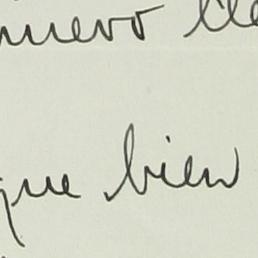 nuevo
que bien